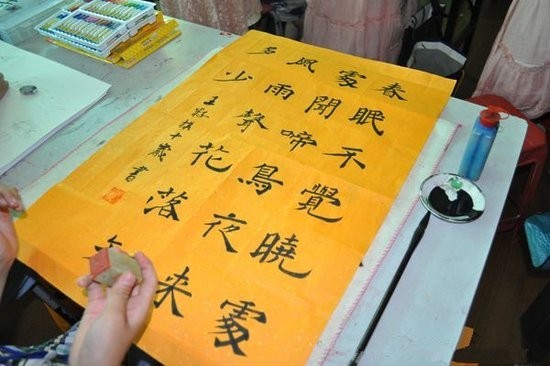 春眠不覺曉處
處聞啼鳥夜來
風雨聲花落
多少
王十歲書